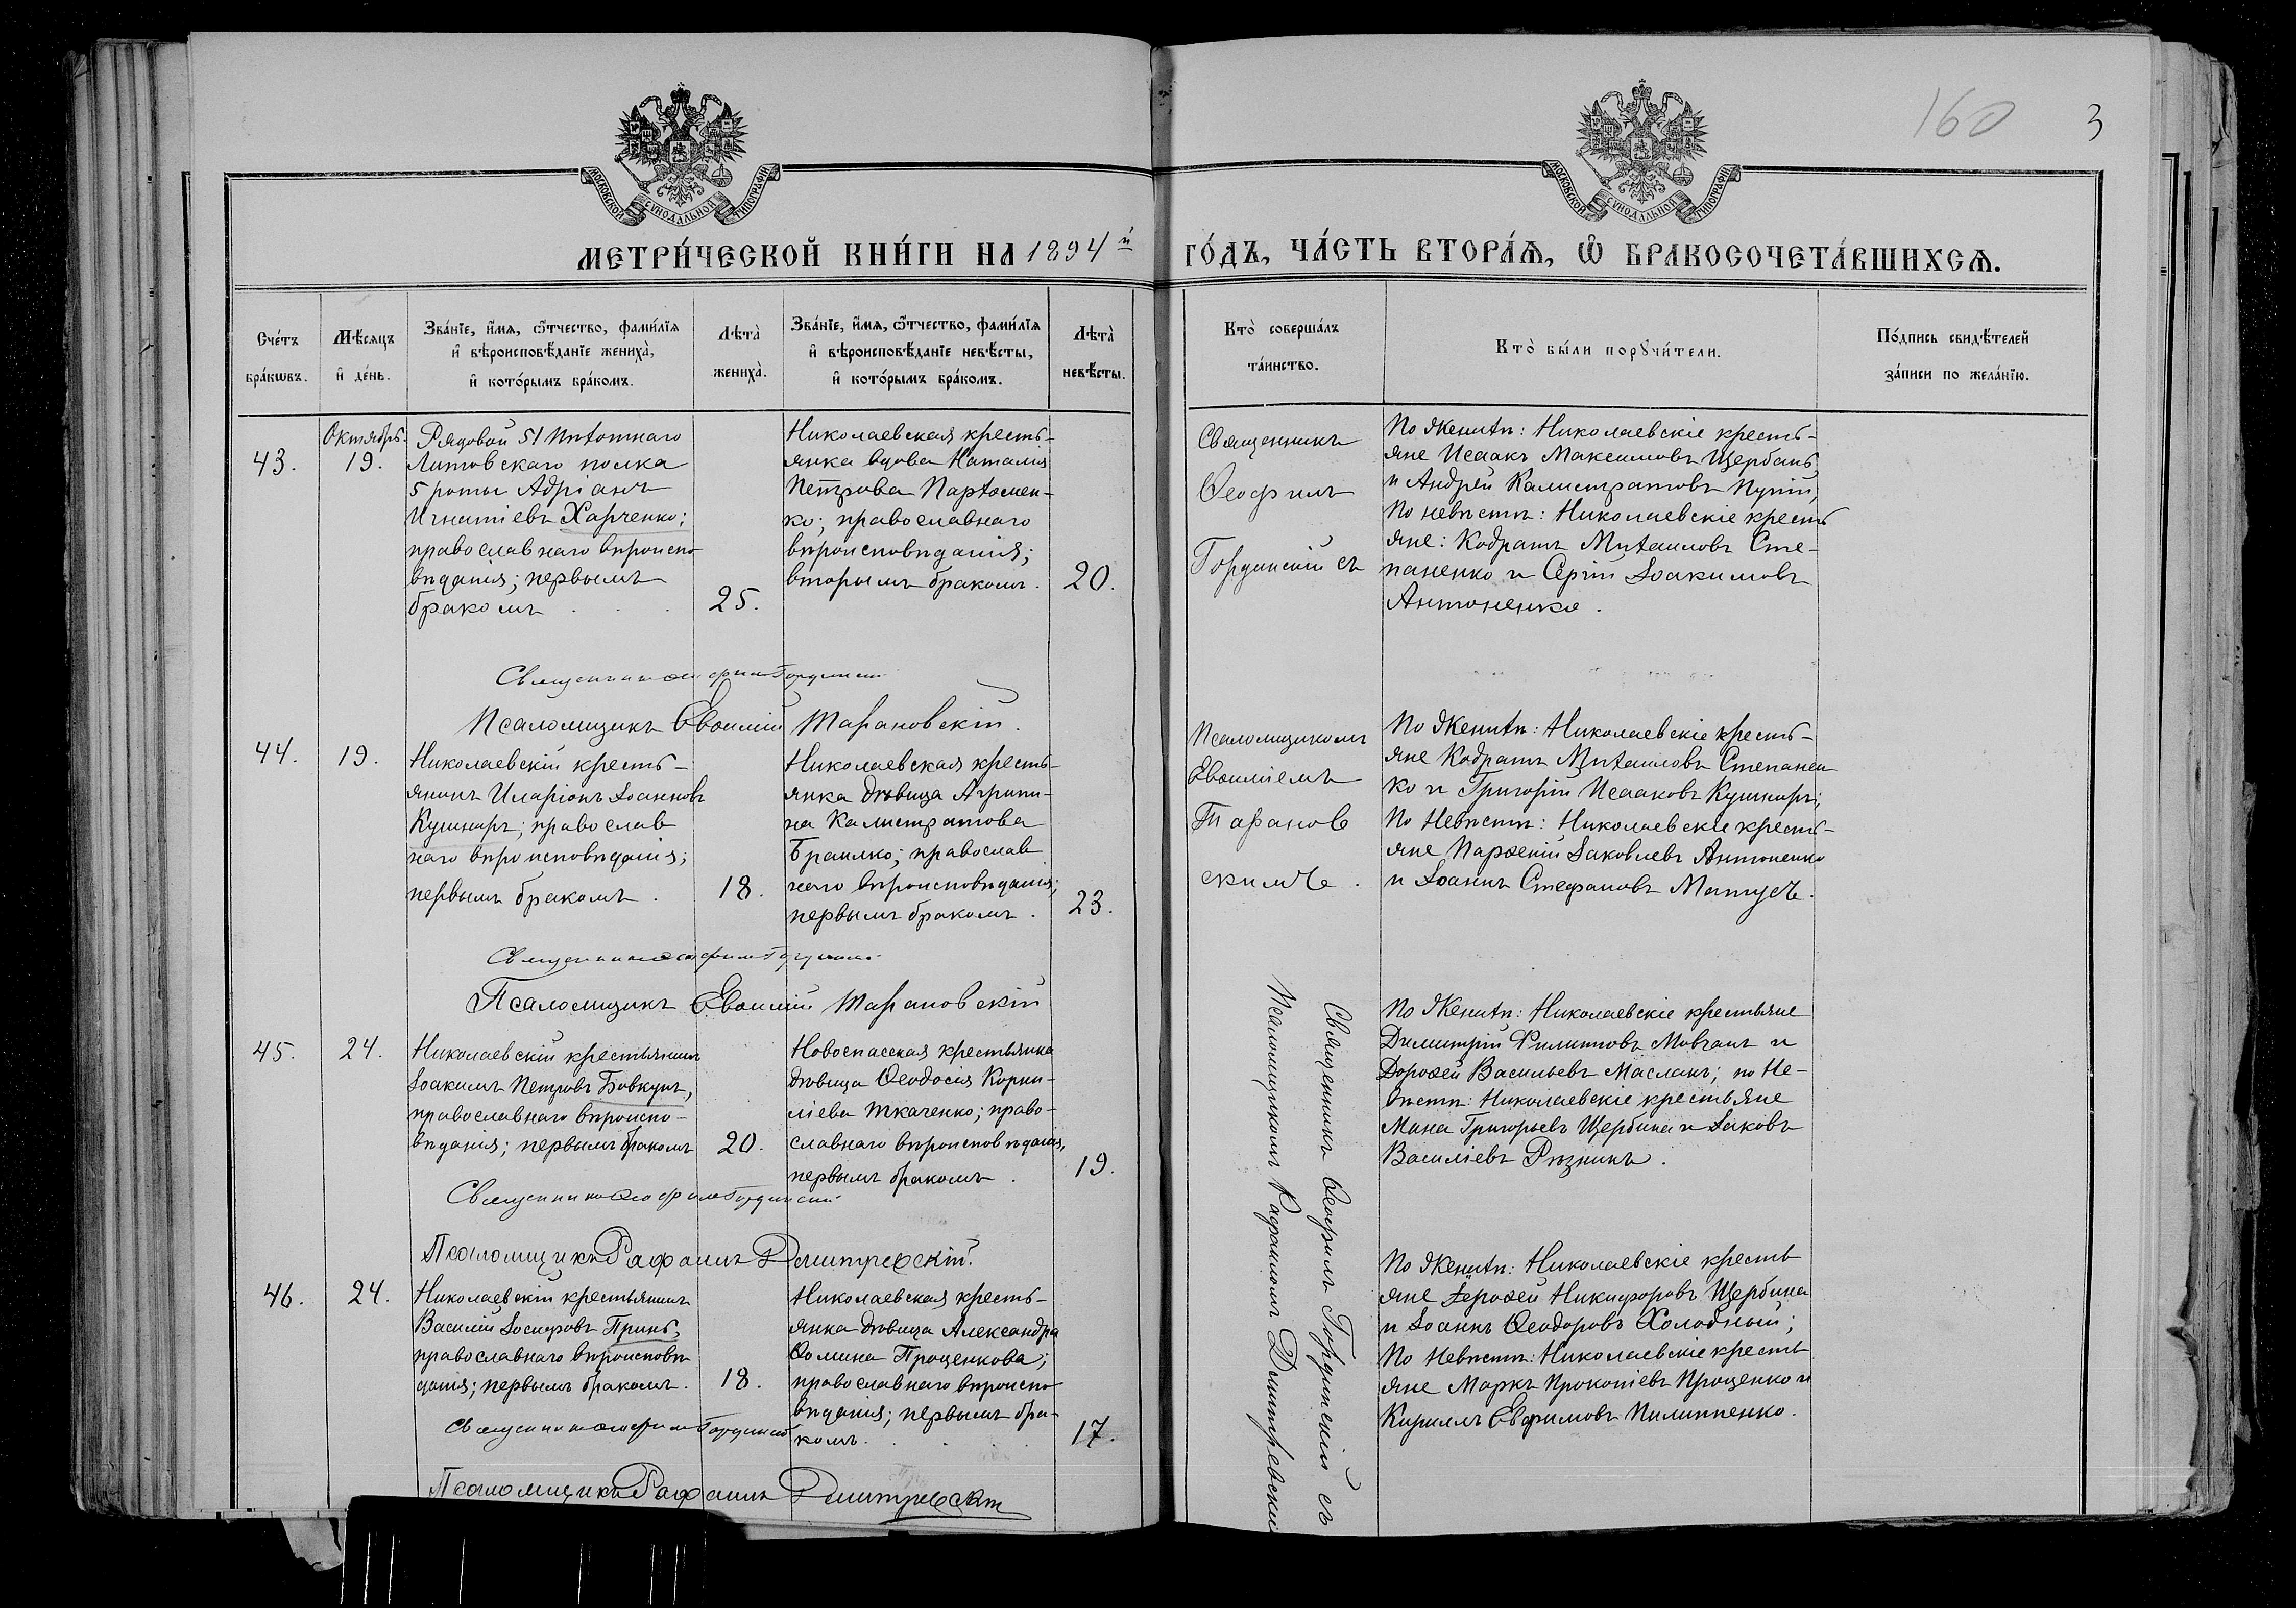 160 3
МОСКОВСКОЙ СѴНОДАЛЬНОЙ ТИПОГРАФІИ
МОСКОВСКОЙ СѴНОДАЛЬНОЙ ТИПОГРАФІИ
МЕТРИ́ЧЕСКОЙ КНИ́ГИ НА 1894й ГО́ДЪ, ЧА́СТЬ ВТОРА́Ѧ, Ѡ҆ БРАКОСОЧЕТА́ВШИХСѦ.
Сче́тъ
бра́кѡвъ.
Мѣ́сѧцъ
и҆ де́нь.
Зва́нїе, и҆́мѧ, ѻ҆́тчество, фами́лїѧ
и҆ вѣроисповѣ́данїе жениха̀,
и҆ кото́рымъ бра́комъ.
Лѣта̀
жениха̀.
Зва́нїе, и҆́мѧ, ѻ҆́тчество, фами́лїѧ
и҆ вѣроисповѣ́данїе невѣ́сты,
и҆ кото́рымъ бра́комъ.
Лѣта̀
невѣ́сты.
Кто̀ соверша́лъ
та́инство.
Кто̀ бы́ли порꙋчи́тели.
По́дпись свидѣ́телей
за́писи по жела́нїю.
43.
Октябрь.
19.
Рядовой 51 пѣхотнаго
Литовскаго полка
5 роты Адріанъ
Игнатіевъ Харченко;
православнаго вѣроиспо-
вѣданія; первымъ
бракомъ
25.
Николаевская кресть-
янка вдова Наталія
Петрова Пархомен-
ко; православнаго
вѣроисповѣданія;
вторымъ бракомъ.
20.
Священникъ
Ѳеофилъ
Гординскій съ
По Женихѣ: Николаевскіе кресть-
яне Исаакъ Максимовъ Щербань
и Андрей Калистратовъ Путій;
По невѣстѣ: Николаевскіе кресть
яне: Кодратъ Михаиловъ Сте-
паненко и Сергій Іоакимовъ
Антоненко.
Священникъ Ѳеофилъ Гординскій
Псаломщикъ Евѳимій Тарановскій.
44.
19.
Николаевскій кресть-
янинъ Иларіонъ Іоанновъ
Кушниръ; православ
наго вѣроисповѣданія;
первымъ бракомъ.
18.
Николаевская кресть-
янка дѣвица Агрипи-
на Калистратова
Браилко; православ
наго вѣроисповѣданія;
первымъ бракомъ.
23.
Псаломщикомъ
Евѳиміемъ
Таранов
скимъ.
По Женихѣ: Николаевскіе кресть-
яне Кодратъ Михаиловъ Степанен
ко и Григорій Исааковъ Кушниръ;
По Невѣстѣ: Николаевскіе кресть-
яне Парѳеній Іаковлевъ Антоненко
и Іоаннъ Стефановъ Матусъ.
Священникъ Ѳеофилъ Гординскій
Псаломщикъ Евѳимій Тарановскій
45.
24.
Николаевскій крестьянинъ
Іоакимъ Петровъ Бовкунъ,
православнаго вѣроиспо-
вѣданія; первымъ бракомъ
20.
Новоспасская крестьянка
дѣвица Ѳеодосія Корни-
ліева Ткаченко; право-
славнаго вѣроисповѣданія,
первымъ бракомъ.
19.
Священникъ Ѳеофилъ Гординскій съ
Псаломщикомъ Рафаиломъ Дмитревски
По Женихѣ: Николаевскіе крестьяне
Димитрій Филипповъ Мовчанъ и
Дороѳей Васильевъ Маслакъ; по Не-
вѣстѣ: Николаевскіе крестьяне
Мина Григорьевъ Щербина и Іаковъ
Василіевъ Рѣзникъ.
Священникъ Ѳеофилъ Гординскій
Псаломщикъ Рафаилъ Дмитревскій.
46.
24.
Николаевскій крестьянинъ
Василій Іосифовъ Принь,
православнаго вѣроисповѣ
данія; первымъ бракомъ.
18.
Николаевская кресть-
янка дѣвица Александра
Ѳомина Проценкова;
православнаго вѣроиспо-
вѣданія; первымъ бра-
комъ.
17.
По Женихѣ: Николаевскіе кресть
яне Дороѳей Никифоровъ Щербина
и Іоаннъ Ѳеодоровъ Холодный;
По Невѣстѣ: Николаевскіе кресть
яне Маркъ Прокопіевъ Проценко и
Кириллъ Евфимовъ Пилипенко.
Священникъ Ѳеофилъ Гординскій
Псаломщикъ Рафаилъ Дмитревскій